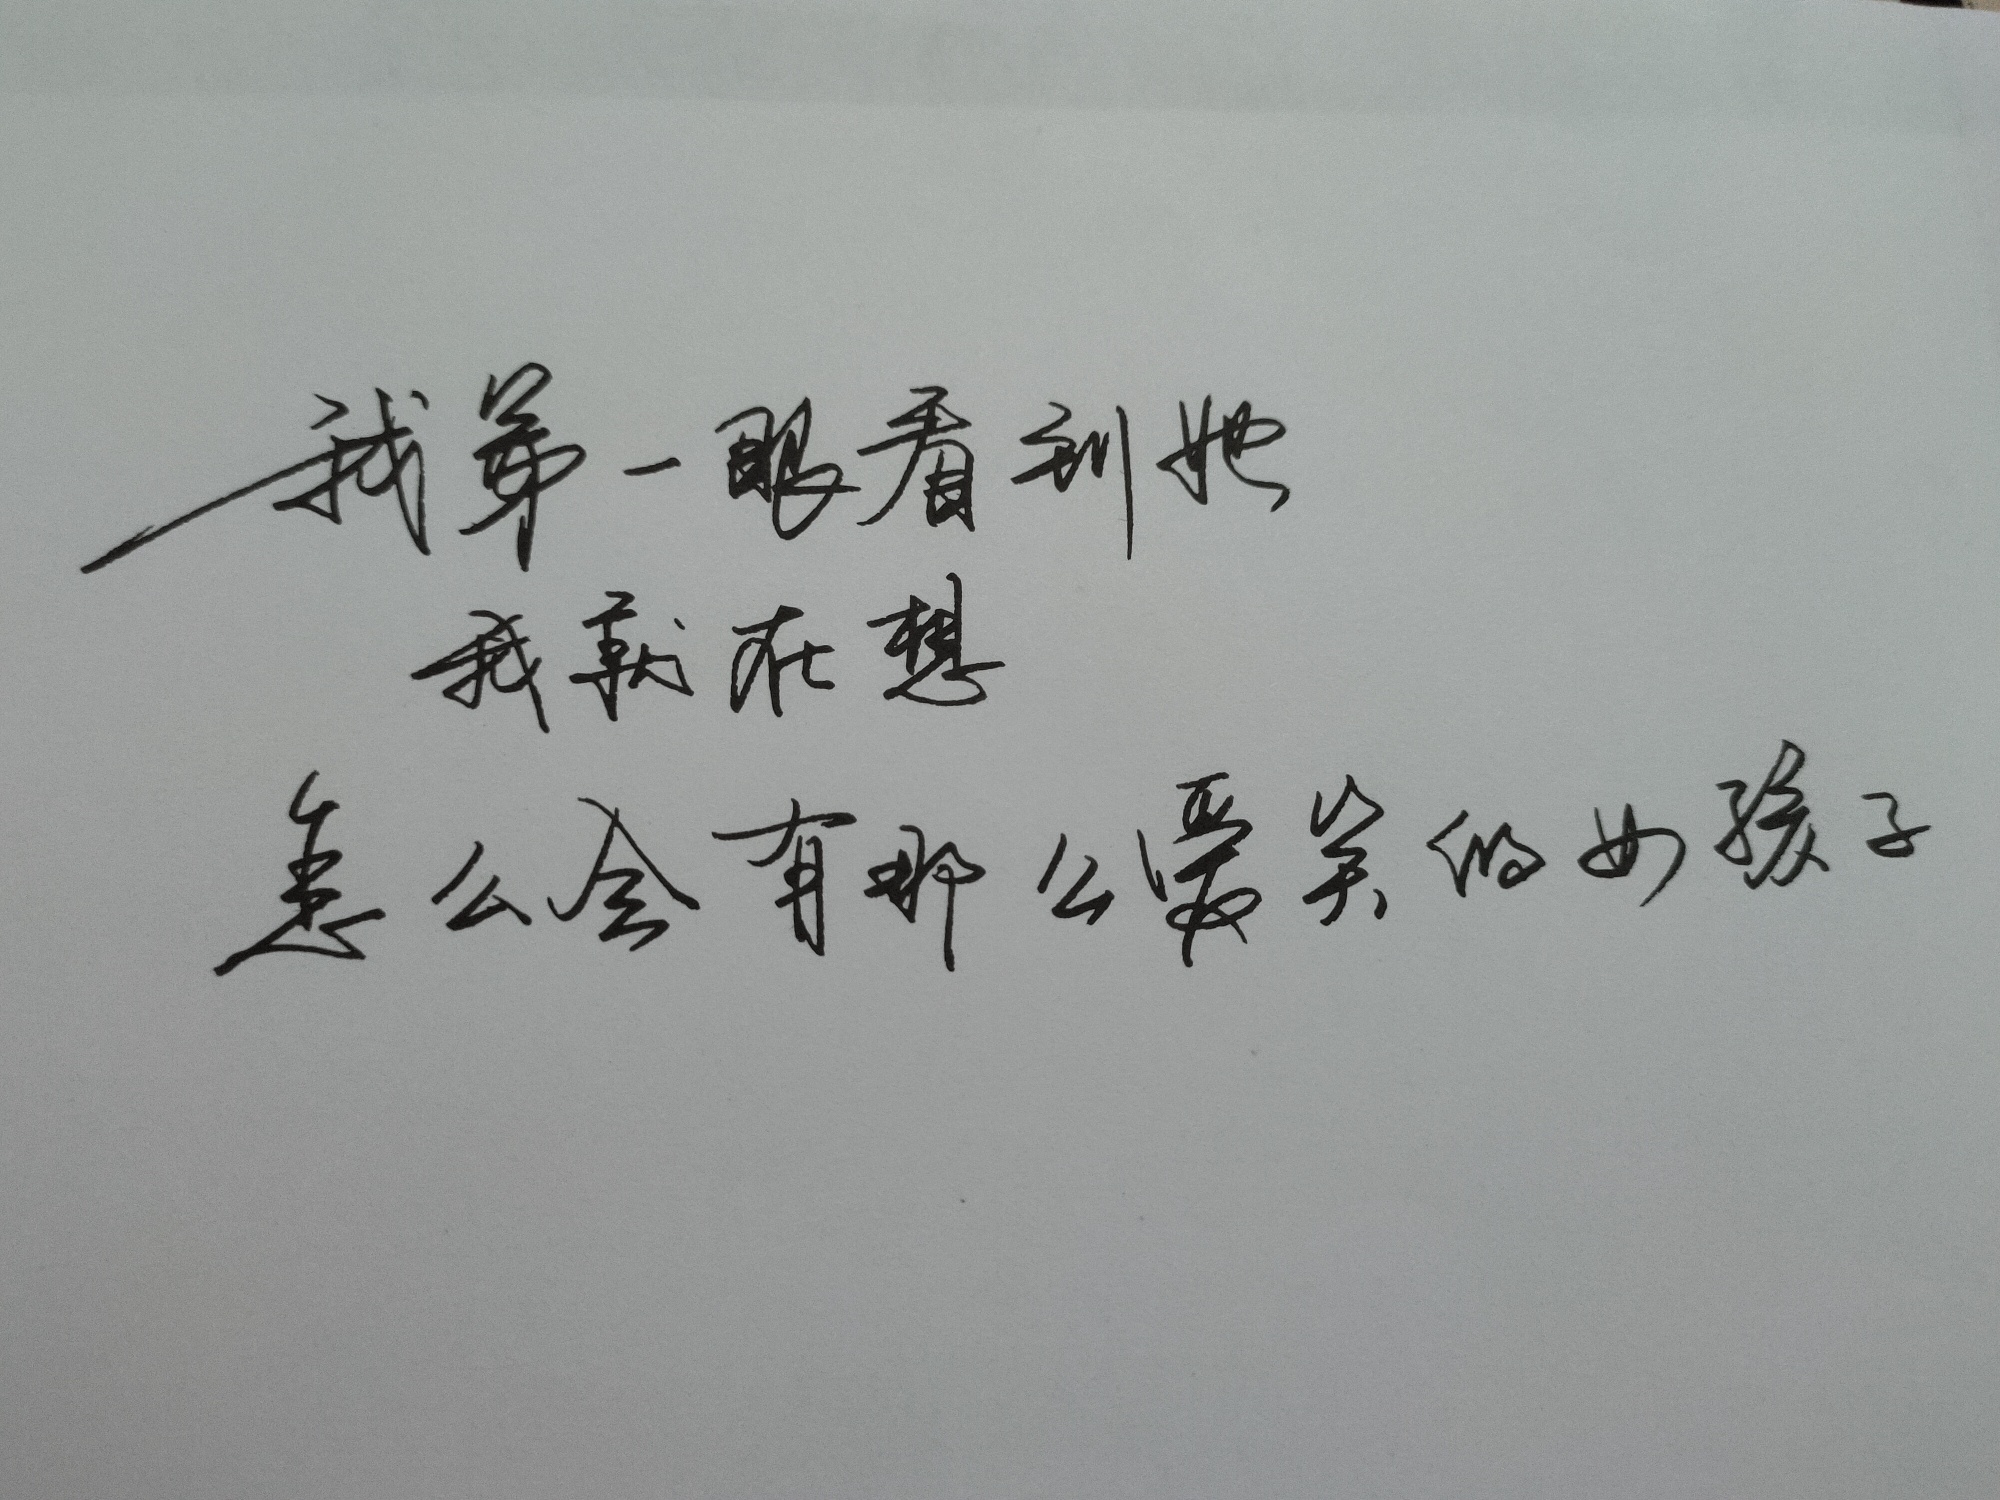 我第一眼看到她
我就在想
怎么会有那么爱笑的女孩子